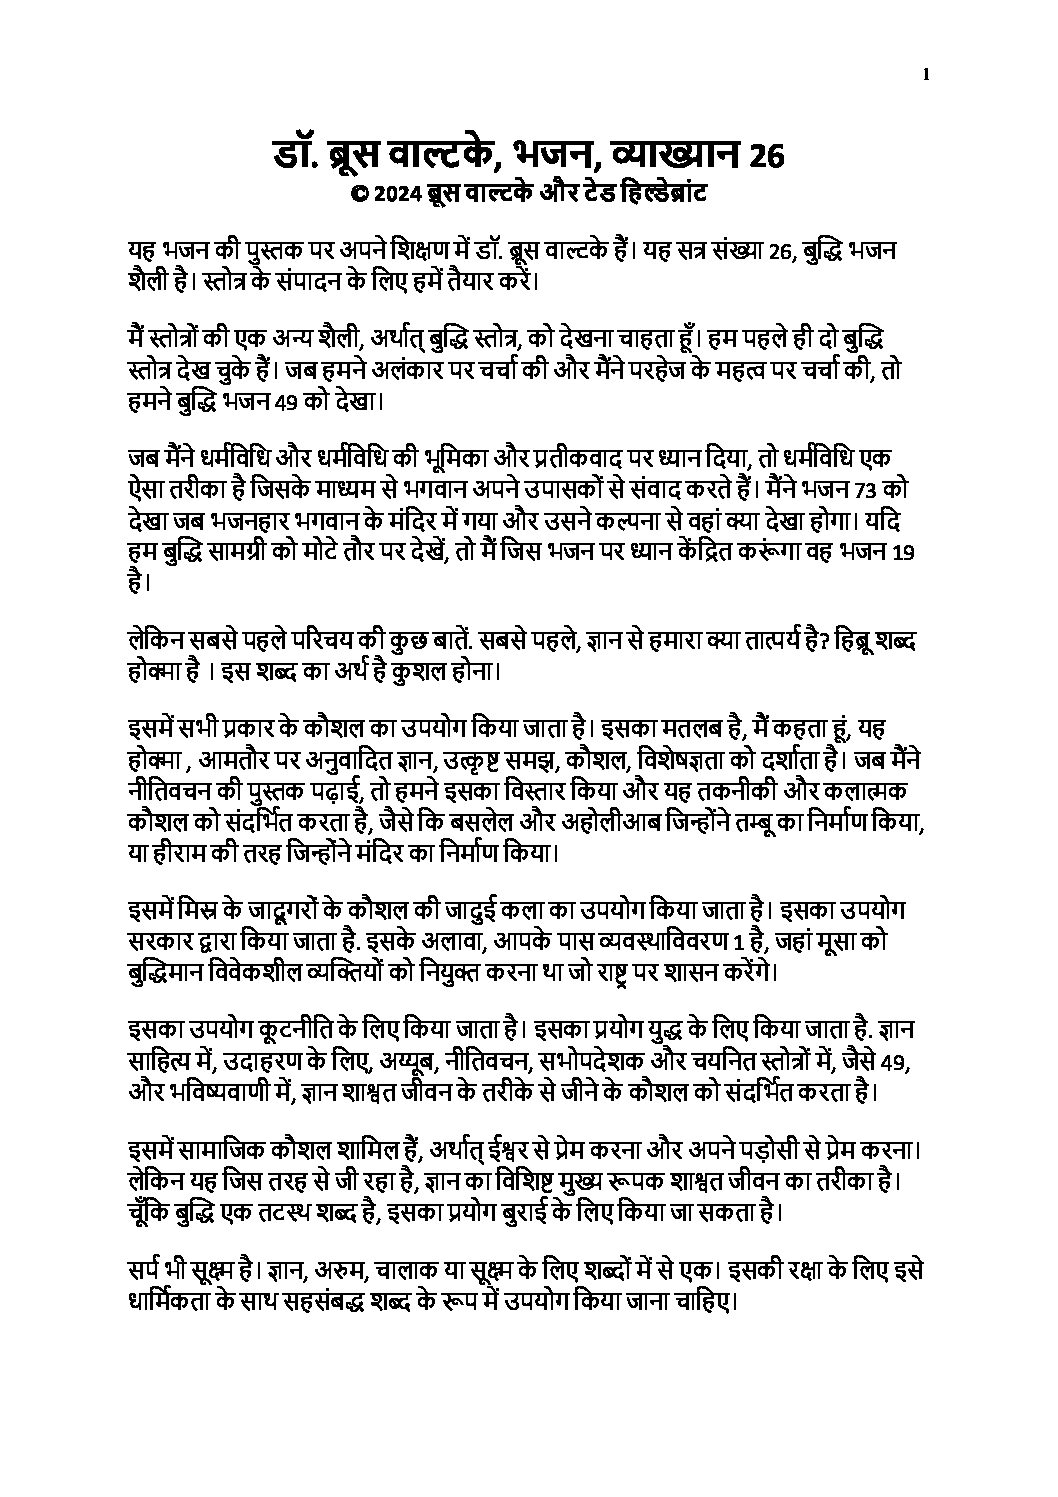 1
डॉ. ब्रूस वाल्टके, भजन, व्याख्यान 26
© 2024 ब्रूस वाल्टके और टेड हिल्डेब्रांट
यह भजन की पुस्तक पर अपने शिक्षण में डॉ. ब्रूस वाल्टके हैं। यह सत्र संख्या 26, बुद्धि भजन
शैली है। स्तोत्र के संपादन के लिए हमें तैयार करें।
मैं स्तोत्रों की एक अन्य शैली, अर्थात् बुद्धि स्तोत्र, को देखना चाहता हूँ। हम पहले ही दो बुद्धि
स्तोत्र देख चुके हैं। जब हमने अलंकार पर चर्चा की और मैंने परहेज के महत्व पर चर्चा की, तो
हमने बुद्धि भजन 49 को देखा।
जब मैंने धर्मविधि और धर्मविधि की भूमिका और प्रतीकवाद पर ध्यान दिया, तो धर्मविधि एक
ऐसा तरीका है जिसके माध्यम से भगवान अपने उपासकों से संवाद करते हैं। मैंने भजन 73 को
देखा जब भजनहार भगवान के मंदिर में गया और उसने कल्पना से वहां क्या देखा होगा। यदि
हम बुद्धि सामग्री को मोटे तौर पर देखें, तो मैं जिस भजन पर ध्यान केंद्रित करूंगा वह भजन 19
है।
लेकिन सबसे पहले परिचय की कुछ बातें. सबसे पहले, ज्ञान से हमारा क्या तात्पर्य है? हिब्रू शब्द
होक्मा है । इस शब्द का अर्थ है कुशल होना।
इसमें सभी प्रकार के कौशल का उपयोग किया जाता है। इसका मतलब है, मैं कहता हूं, यह
होक्मा , आमतौर पर अनुवादित ज्ञान, उत्कृष्ट समझ, कौशल, विशेषज्ञता को दर्शाता है। जब मैंने
नीतिवचन की पुस्तक पढ़ाई, तो हमने इसका विस्तार किया और यह तकनीकी और कलात्मक
कौशल को संदर्भित करता है, जैसे कि बसलेल और अहोलीआब जिन्होंने तम्बू का निर्माण किया,
या हीराम की तरह जिन्होंने मंदिर का निर्माण किया।
इसमें मिस्र के जादूगरों के कौशल की जादुई कला का उपयोग किया जाता है। इसका उपयोग
सरकार द्वारा किया जाता है. इसके अलावा, आपके पास व्यवस्थाविवरण 1 है, जहां मूसा को
बुद्धिमान विवेकशील व्यक्तियों को नियुक्त करना था जो राष्ट्र पर शासन करेंगे।
इसका उपयोग कूटनीति के लिए किया जाता है। इसका प्रयोग युद्ध के लिए किया जाता है. ज्ञान
साहित्य में, उदाहरण के लिए, अय्यूब, नीतिवचन, सभोपदेशक और चयनित स्तोत्रों में, जैसे 49,
और भविष्यवाणी में, ज्ञान शाश्वत जीवन के तरीके से जीने के कौशल को संदर्भित करता है।
इसमें सामाजिक कौशल शामिल हैं, अर्थात् ईश्वर से प्रेम करना और अपने पड़ोसी से प्रेम करना।
लेकिन यह जिस तरह से जी रहा है, ज्ञान का विशिष्ट मुख्य रूपक शाश्वत जीवन का तरीका है।
चूँकि बुद्धि एक तटस्थ शब्द है, इसका प्रयोग बुराई के लिए किया जा सकता है।
सर्प भी सूक्ष्म है। ज्ञान, अरुम, चालाक या सूक्ष्म के लिए शब्दों में से एक। इसकी रक्षा के लिए इसे
धार्मिकता के साथ सहसंबद्ध शब्द के रूप में उपयोग किया जाना चाहिए।